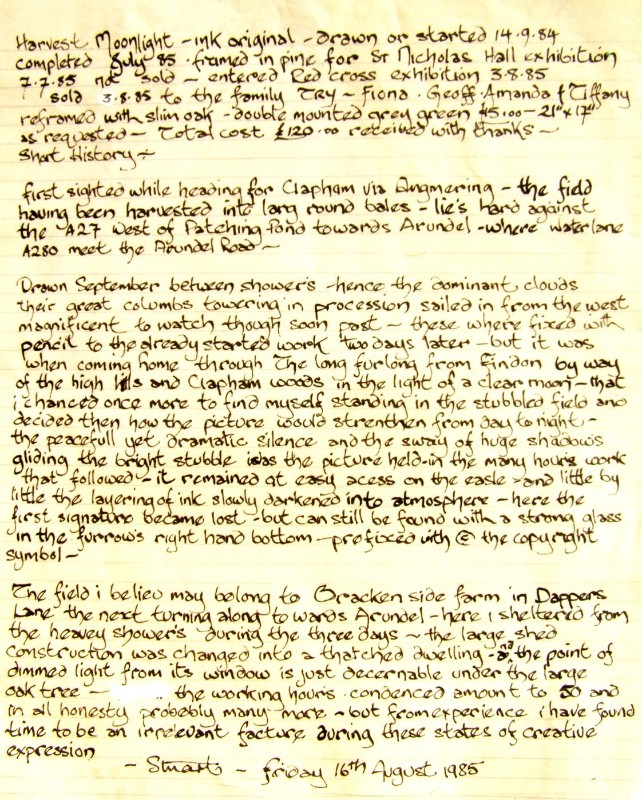 Harvest Moonlight - ink original - drawn or started 14.9.84
completed July 85 . framed in pine for St Nicholas Hall exhibition
7.7.85 not sold - entered Red cross exhibition 3.8.85
sold 3.8.85 to the family Try - Fiona . Geoff. Amanda & Tiffany
reframed with slim oak - double mounted grey green £15.00 - 21" x 17"
as requested - Total cost £120.00 received with thanks ~
Short History ~
first sighted while heading for Clapham via Angmering - the field
having been harvested into larg round bales - lie's hard against
the A27 West of Patching Pond towards Arundel - where water lane
A280 meet the Arundel Road ~
Drawn September between shower's - hence the dominant clouds
their great columbs towering in procession sailed in from the west
magnificent to watch though soon past - these where fixed with
pencil to the already started work two days later - but it was
when coming home through The long furlong from Findon by way
of the high hills and Clapham woods in the light of a clear moon - that
i chanced once more to find myself standing in the stubbled field and
decided then how the picture would strenthen from day to night -
the peacefull yet dramatic silence and the sway of huge shadows
gliding the bright stubble was the picture held - in the many hours work
that followed - it remained at easy acess on the easle - and little by
little the layering of ink slowly darkened into atmosphere - here the
first signature became lost - but can still be found with a strong glass
in the furrow's right hand bottom - prefixed with © the copyright
symbol -
The field i believ may belong to Bracken side farm in Dappers
Lane the next turning along to wards Arundel - here i sheltered from
the heavey shower's during the three days ~ the large shed
construction was changed into a thatched dwelling - and the point of
dimmed light from its window is just decernable under the large
oak tree - the working hours . condenced amount to 50 and
in all honesty probebly many more - but from experience i have found
time to be an irrelevant facture during these states of creative
expression
- Stuart - friday 16th August 1985